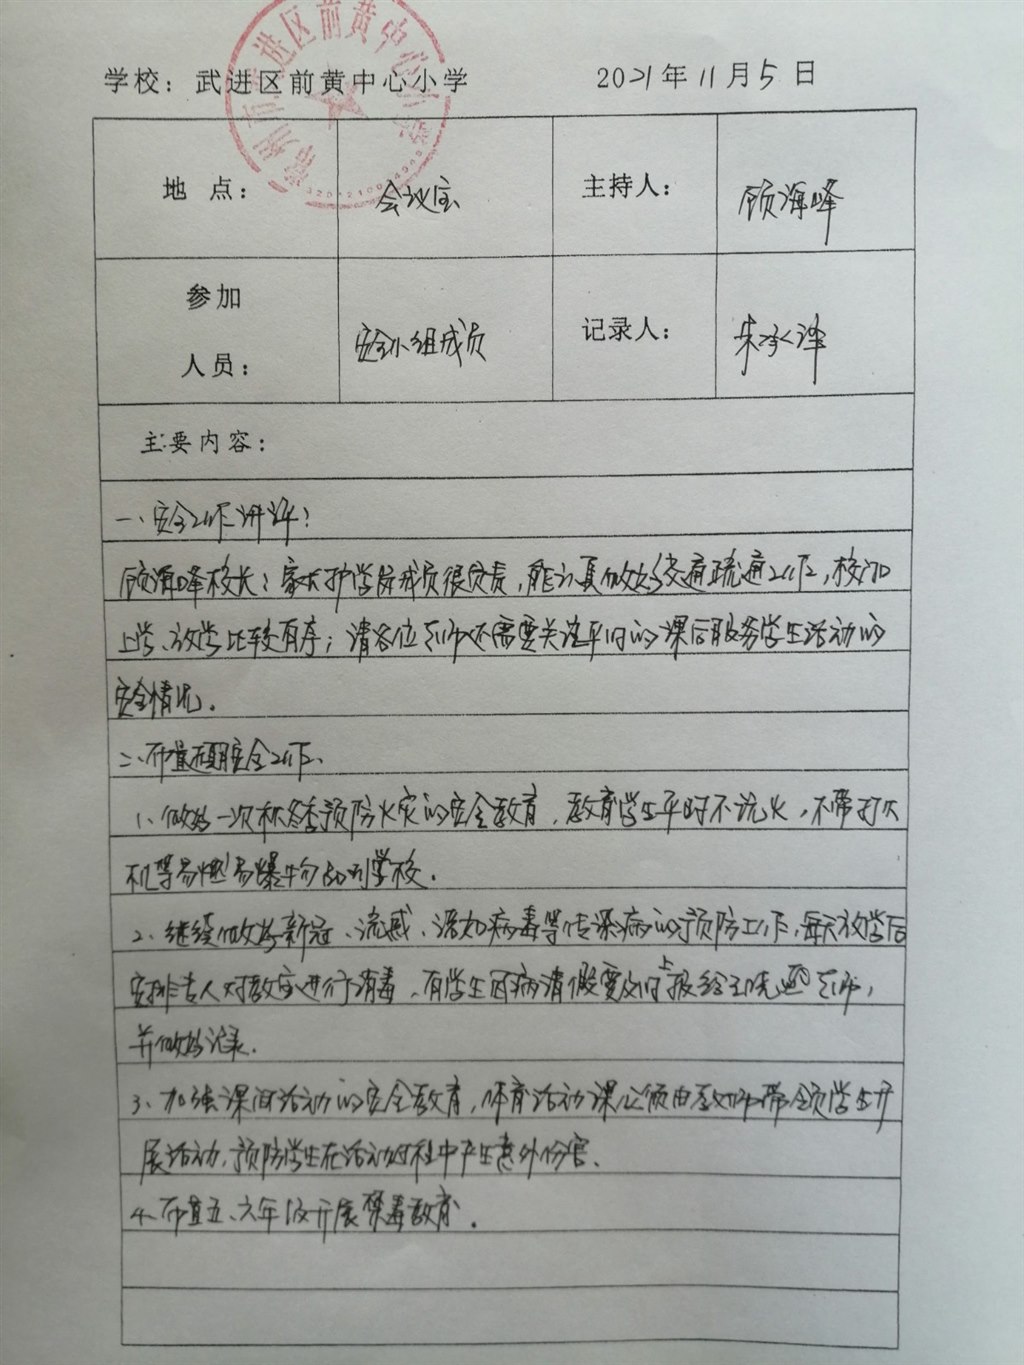 学校：武进区前黄中心小学 2021年11月5日
地 点： 会议室 主持人： 顾海峰
参加
人员： 安全小组成员 记录人： 朱承泽
主要内容：
一、安全工作讲评：
顾海峰校长：家长护学队成员很负责，能认真做好交通疏通工作，校门口
上学、放学比较有序；请各位老师还需要关注平时的课后服务学生活动的
安全情况。
二、布置近期安全工作、
1、做好一次秋冬季预防火灾的安全教育，教育学生平时不玩火，不带打火
机等易燃易爆物品到学校。
2、继续做好新冠、流感、诺如病毒等传染病的预防工作，每天放学后
安排专人对教室进行消毒，有学生因病请假要及时上报给王晓老师，
并做好记录.
3、加强课间活动的安全教育，体育活动课必须由教师带领学生开
展活动，预防学生在活动过程中产生意外伤害、
4、布置五、六年级开展禁毒教育.